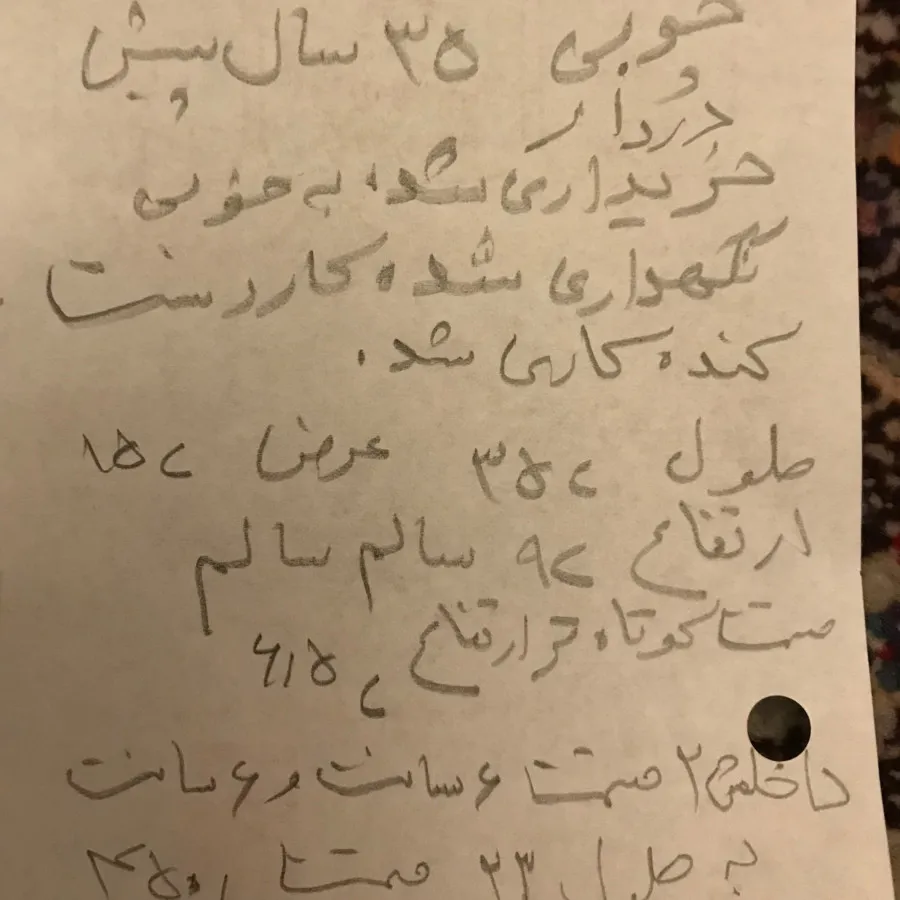 خوبی ۳۵ سال پیش
خریداری شده، به خوبی
نگهداری شده کار دست
کنده کاری شد.
طول ۳۵ عرض ۱۵
ارتفاع ۹ سالم سالم
قسمت کوتاه تر ارتفاع ۶/۵
داخلش ۲ قسمت ۶ سانت و ۶ سانت
به طول ۲۳ قسمت